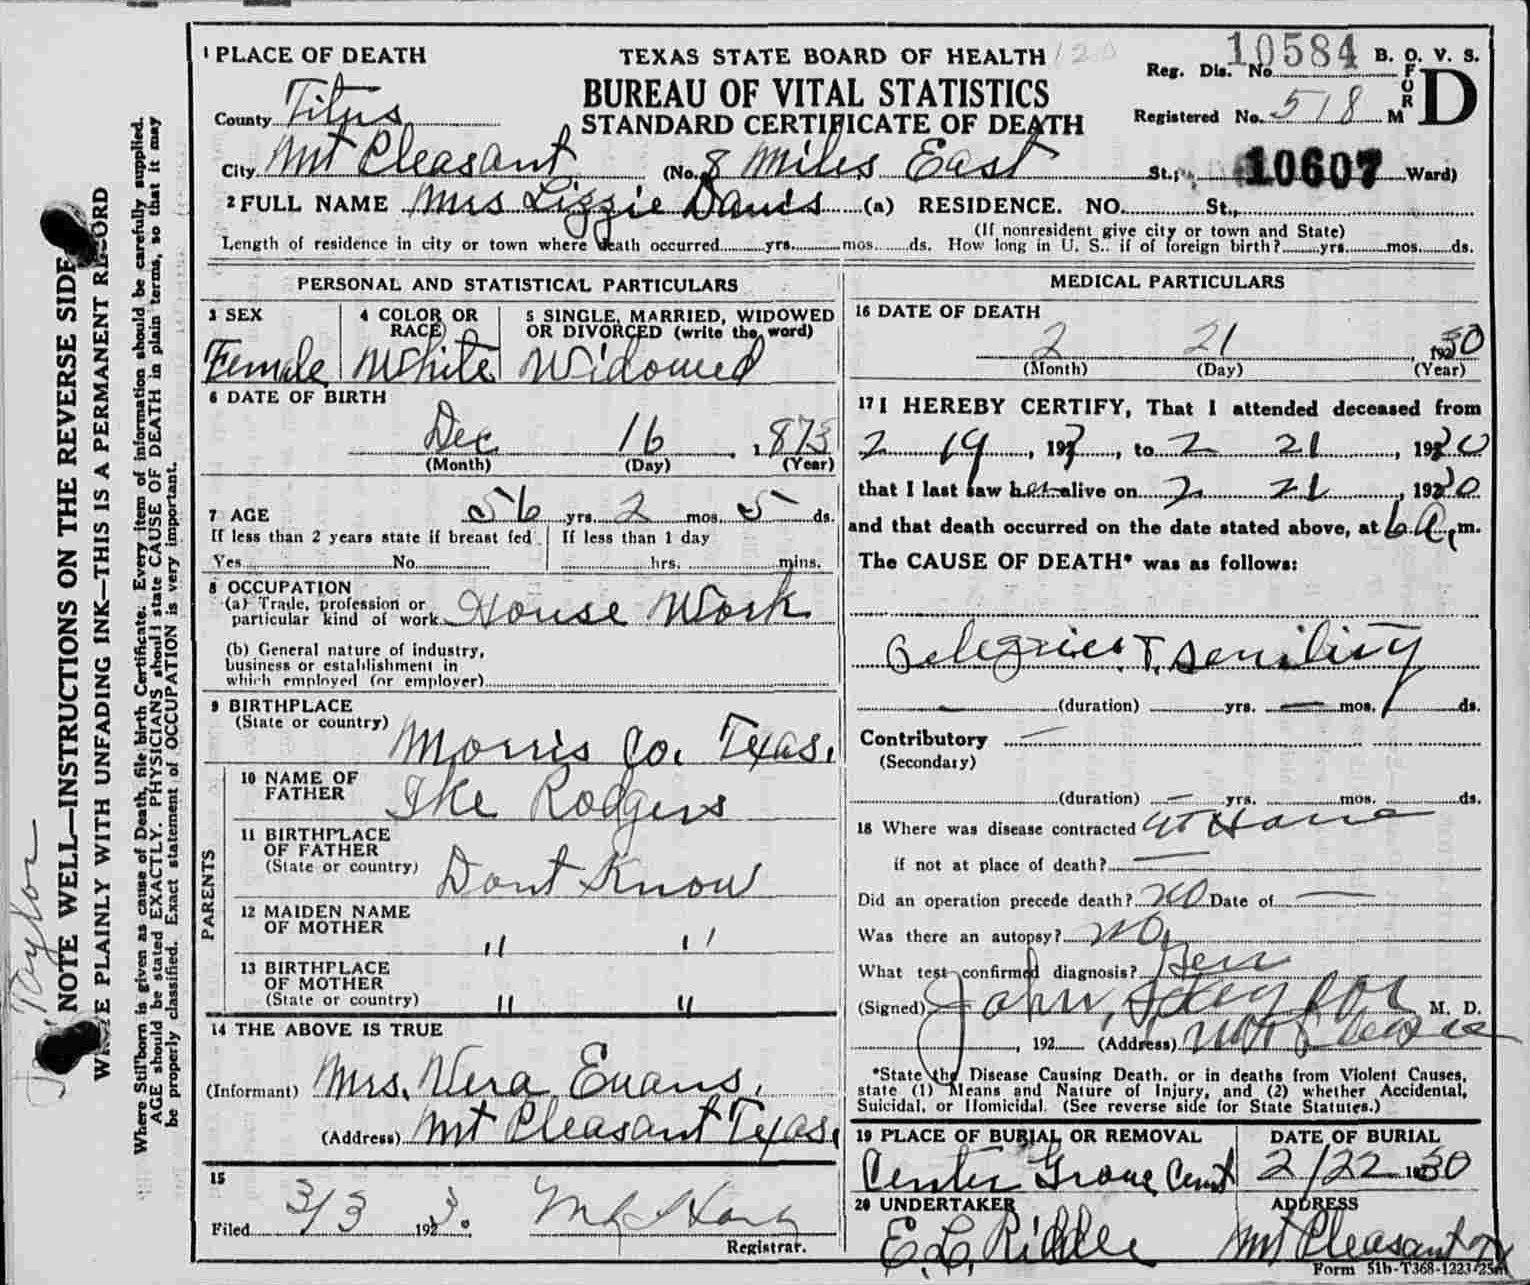 1 PLACE OF DEATH
TEXAS STATE BOARD OF HEALTH 120
Reg. Dis. No. 10584 B. O. V. S.
BUREAU OF VITAL STATISTICS
FORM D
County Titus
STANDARD CERTIFICATE OF DEATH
Registered No. 518
City Mt Pleasant (No. 8 Miles East St.; 10607 Ward)
2 FULL NAME Mrs Lizzie Davis (a) RESIDENCE. NO. St.,
(If nonresident give city or town and State)
Length of residence in city or town where death occurred yrs. mos. ds. How long in U. S.. if of foreign birth? yrs. mos. ds.
PERSONAL AND STATISTICAL PARTICULARS
3 SEX
4 COLOR OR RACE
5 SINGLE, MARRIED, WIDOWED
OR DIVORCED (write the word)
Female White Widowed
6 DATE OF BIRTH
Dec 16, 1873
(Month) (Day) (Year)
7 AGE 56 yrs. 2 mos. 5 ds.
If less than 2 years state if breast fed
If less than 1 day
Yes No hrs. mins.
8 OCCUPATION
(a) Trade, profession or
particular kind of work House Work
(b) General nature of industry,
business or establishment in
which employed (or employer)
9 BIRTHPLACE
(State or country) Morris Co. Texas.
PARENTS
10 NAME OF
FATHER Ike Rodgers
11 BIRTHPLACE
OF FATHER
(State or country) Dont Know
12 MAIDEN NAME
OF MOTHER " "
13 BIRTHPLACE
OF MOTHER
(State or country) " "
14 THE ABOVE IS TRUE
(Informant) Mrs. Vera Evans,
(Address) Mt Pleasant Texas.
15
Filed 3/3 1930
Registrar.
MEDICAL PARTICULARS
16 DATE OF DEATH
2 21, 1930
(Month) (Day) (Year)
17 I HEREBY CERTIFY, That I attended deceased from
2 19, 193, to 2 21, 1930
that I last saw her alive on 2 21, 1930
and that death occurred on the date stated above, at 6 a. m.
The CAUSE OF DEATH* was as follows:
senility
(duration) yrs. mos. ds.
Contributory
(Secondary)
(duration) yrs. mos. ds.
18 Where was disease contracted at Home
if not at place of death?
Did an operation precede death? no Date of
Was there an autopsy? no
What test confirmed diagnosis? Gen
(Signed) John Taylor M. D.
, 192 (Address) Mt Pleasant
*State the Disease Causing Death, or in deaths from Violent Causes,
state (1) Means and Nature of Injury, and (2) whether Accidental,
Suicidal, or Homicidal. (See reverse side for State Statutes.)
19 PLACE OF BURIAL OR REMOVAL
DATE OF BURIAL
Center Grove Cemt 2/22 1930
20 UNDERTAKER
ADDRESS
E. L. Riddle Mt Pleasant Tx
Form 51b-T368-1223-25m
Taylor
NOTE WELL—INSTRUCTIONS ON THE REVERSE SIDE
WRITE PLAINLY WITH UNFADING INK—THIS IS A PERMANENT RECORD
Where Stillborn is given as cause of Death, file birth Certificate. Every item of information should be carefully supplied.
AGE should be stated EXACTLY. PHYSICIANS should state CAUSE OF DEATH in plain terms, so that it may
be properly classified. Exact statement of OCCUPATION is very important.